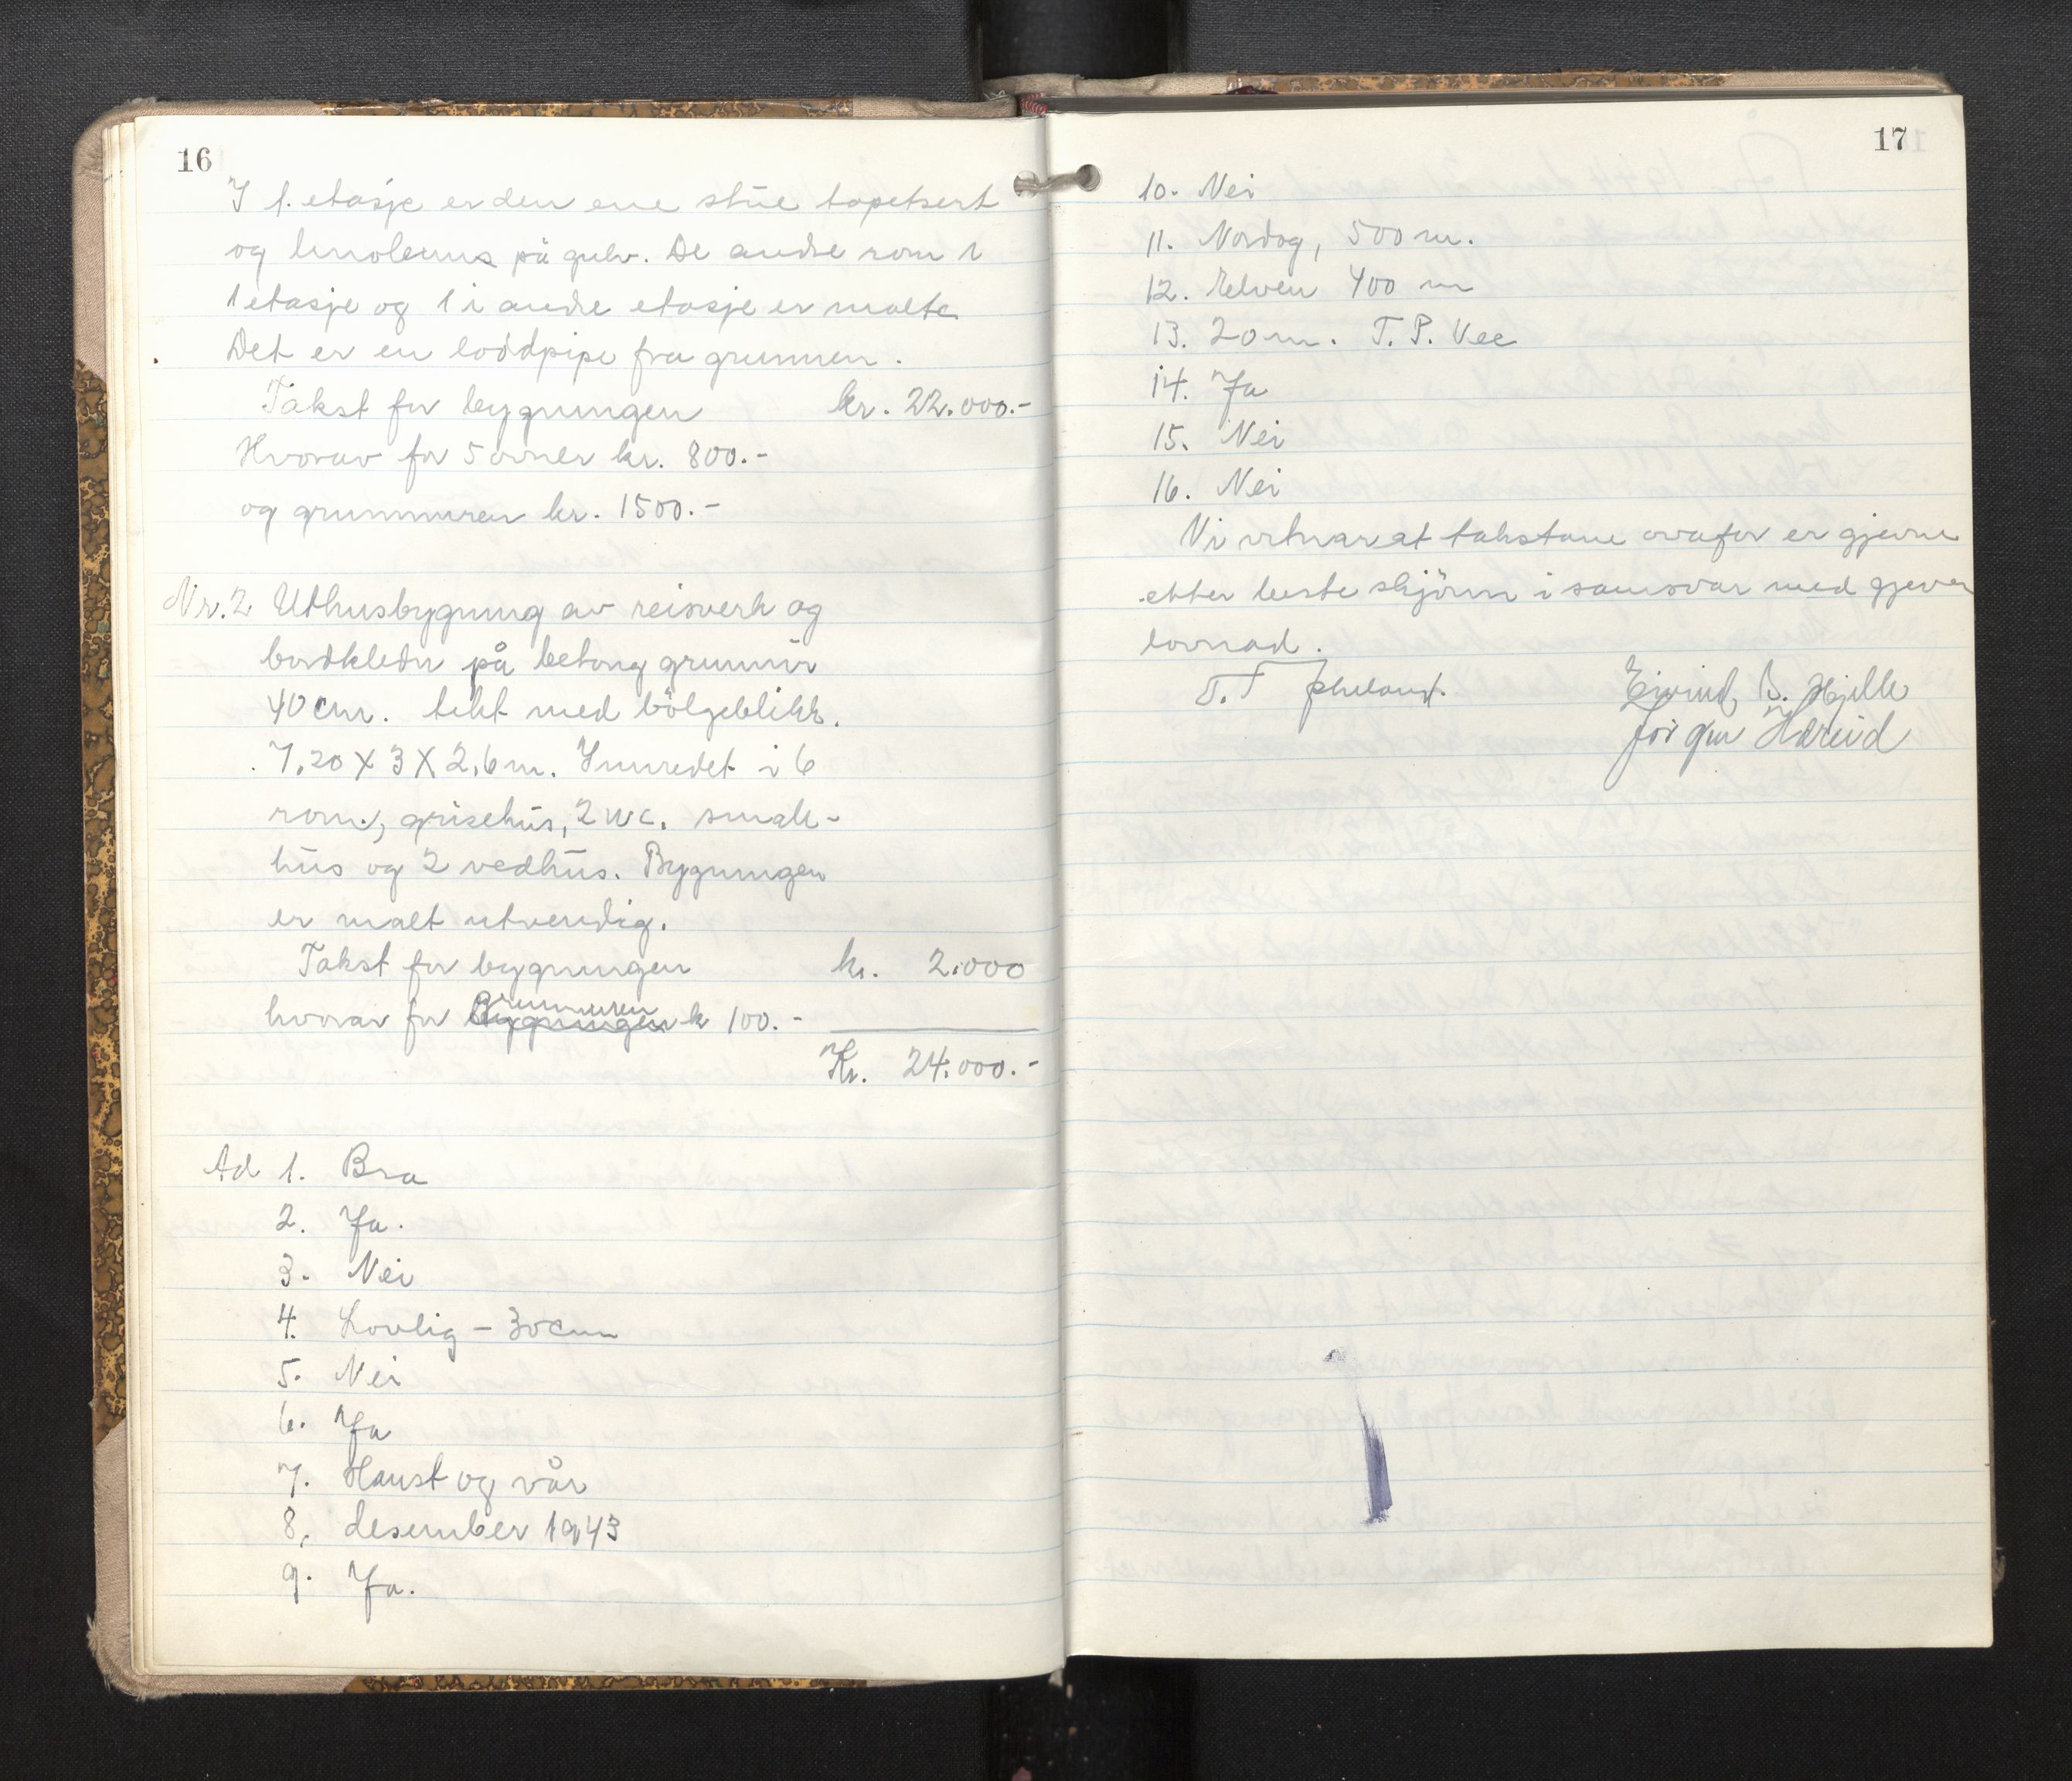 16
I 1. etasje er den ene stue tapetsert
og linoleums på gulv. De andre rom i
1 etasje og 1 i andre etasje er malte.
Det er en loddpipe fra grunnen.
Takst for bygningen kr. 22.000.-
Hvorav for 5 ovner kr. 800.-
og grunnmuren kr. 1500.-
Nr. 2 Uthusbygning av reisverk og
bordkledn på betong grunnmur
40 cm. tekt med bölgeblikk.
7,20 X 3 X 2,6 m. Innredet i 6
rom, grisehus, 2 wc. smale-
hus og 2 vedhus. Bygningen
er malt utvendig.
Takst for bygningen kr. 2.000
hvorav for grunnmuren k 100.-
Kr. 24.000.-
Ad 1. Bra
2. Ja.
3. Nei
4. Lovlig - 30 cm
5. Nei
6. Ja
7. Haust og vår
8. desember 1943
9. Ja.
17
10. Nei
11. Nordog, 500 m.
12. Elven 400 m
13. 20 m. T. P. Vee
14. Ja
15. Nei
16. Nei
Vi vitnar at takstane ovafor er gjevne
etter beste skjönn i samsvar med gjeven
lovnad.
Eivind B. Hjelle
Jörgen Håreid